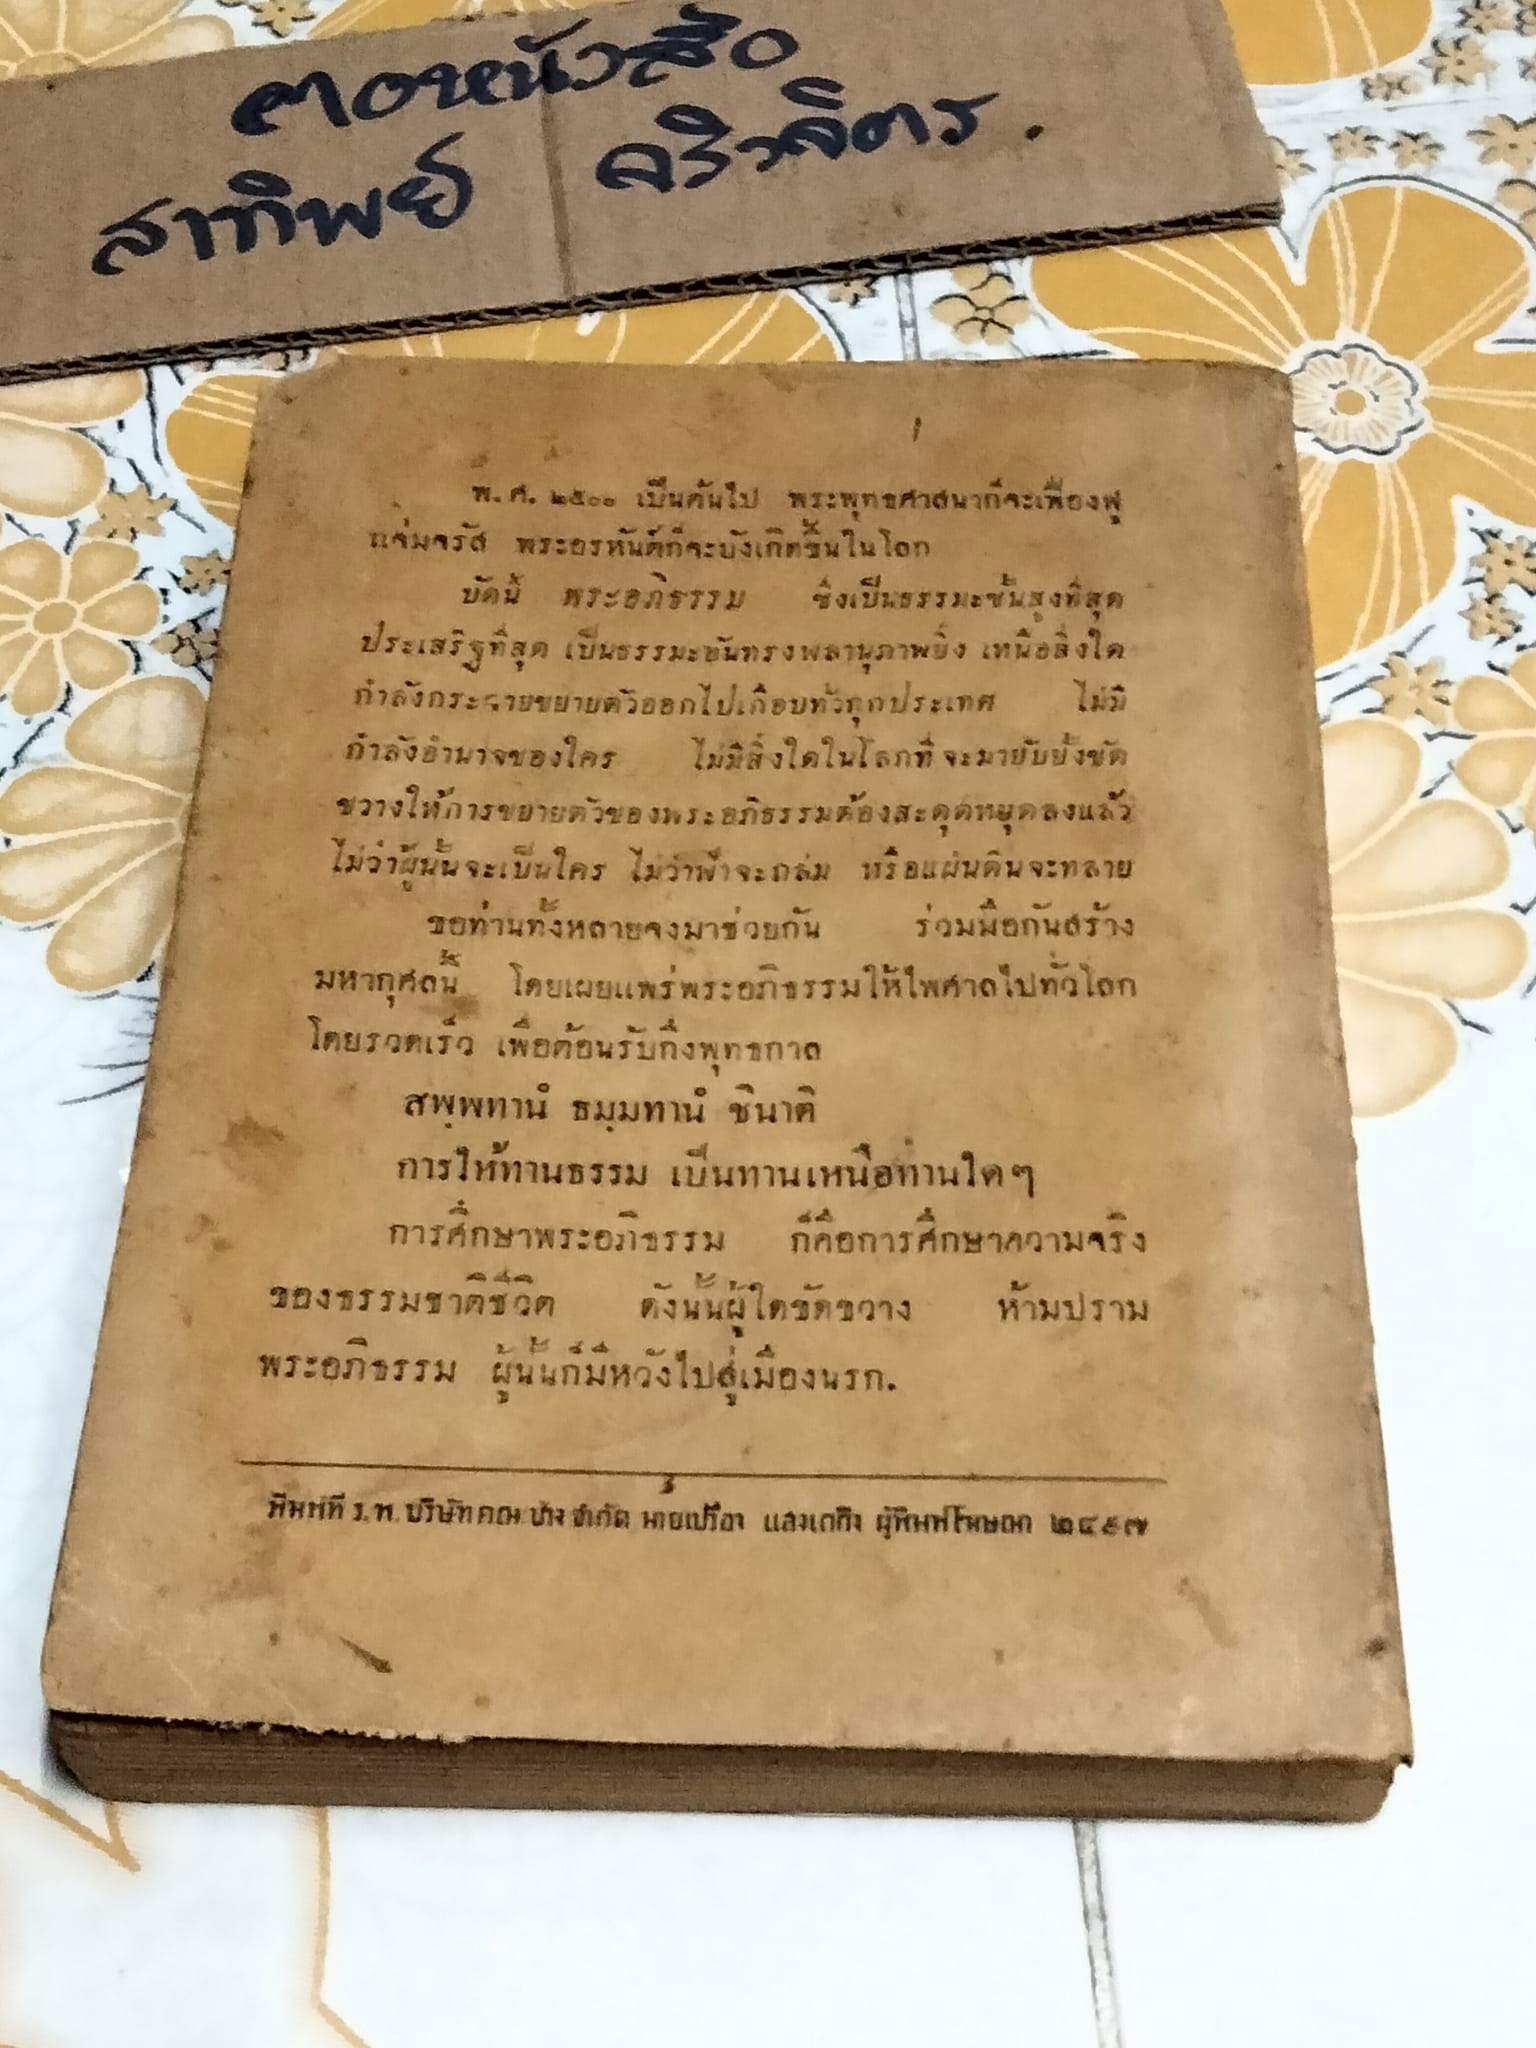 ตอหนังสือ
สาทิพย์ ศริวจิตร.
พ. ศ. ๒๕๐๐ เป็นต้นไป พระพุทธศาสนาก็จะเฟื่องฟู
แจ่มจรัส พระอรหันต์ก็จะบังเกิดขึ้นในโลก
บัดนี้ พระอภิธรรม ซึ่งเป็นธรรมะชั้นสูงที่สุด
ประเสริฐที่สุด เป็นธรรมะอันทรงพลานุภาพยิ่ง เหนือสิ่งใด
กำลังกระจายขยายตัวออกไปเกือบทั่วทุกประเทศ ไม่มี
กำลังอำนาจของใคร ไม่มีสิ่งใดในโลกที่จะมายับยั้งขัด
ขวางให้การขยายตัวของพระอภิธรรมต้องสะดุดหยุดลงแล้ว
ไม่ว่าผู้นั้นจะเป็นใคร ไม่ว่าฟ้าจะถล่ม หรือแผ่นดินจะทลาย
ขอท่านทั้งหลายจงมาช่วยกัน ร่วมมือกันสร้าง
มหากุศลนี้ โดยเผยแพร่พระอภิธรรมให้ไพศาลไปทั่วโลก
โดยรวดเร็ว เพื่อต้อนรับกึ่งพุทธกาล
สพฺพทานํ ธมฺมทานํ ชินาติ
การให้ทานธรรม เป็นทานเหนือทานใดๆ
การศึกษาพระอภิธรรม ก็คือการศึกษาความจริง
ของธรรมชาติชีวิต ดังนั้นผู้ใดขัดขวาง ห้ามปราม
พระอภิธรรม ผู้นั้นก็มีหวังไปสู่เมืองนรก.
พิมพ์ที่ ร. พ. บริษัทคณะช่าง จำกัด ผู้พิมพ์โฆษณา ๒๔๙๗